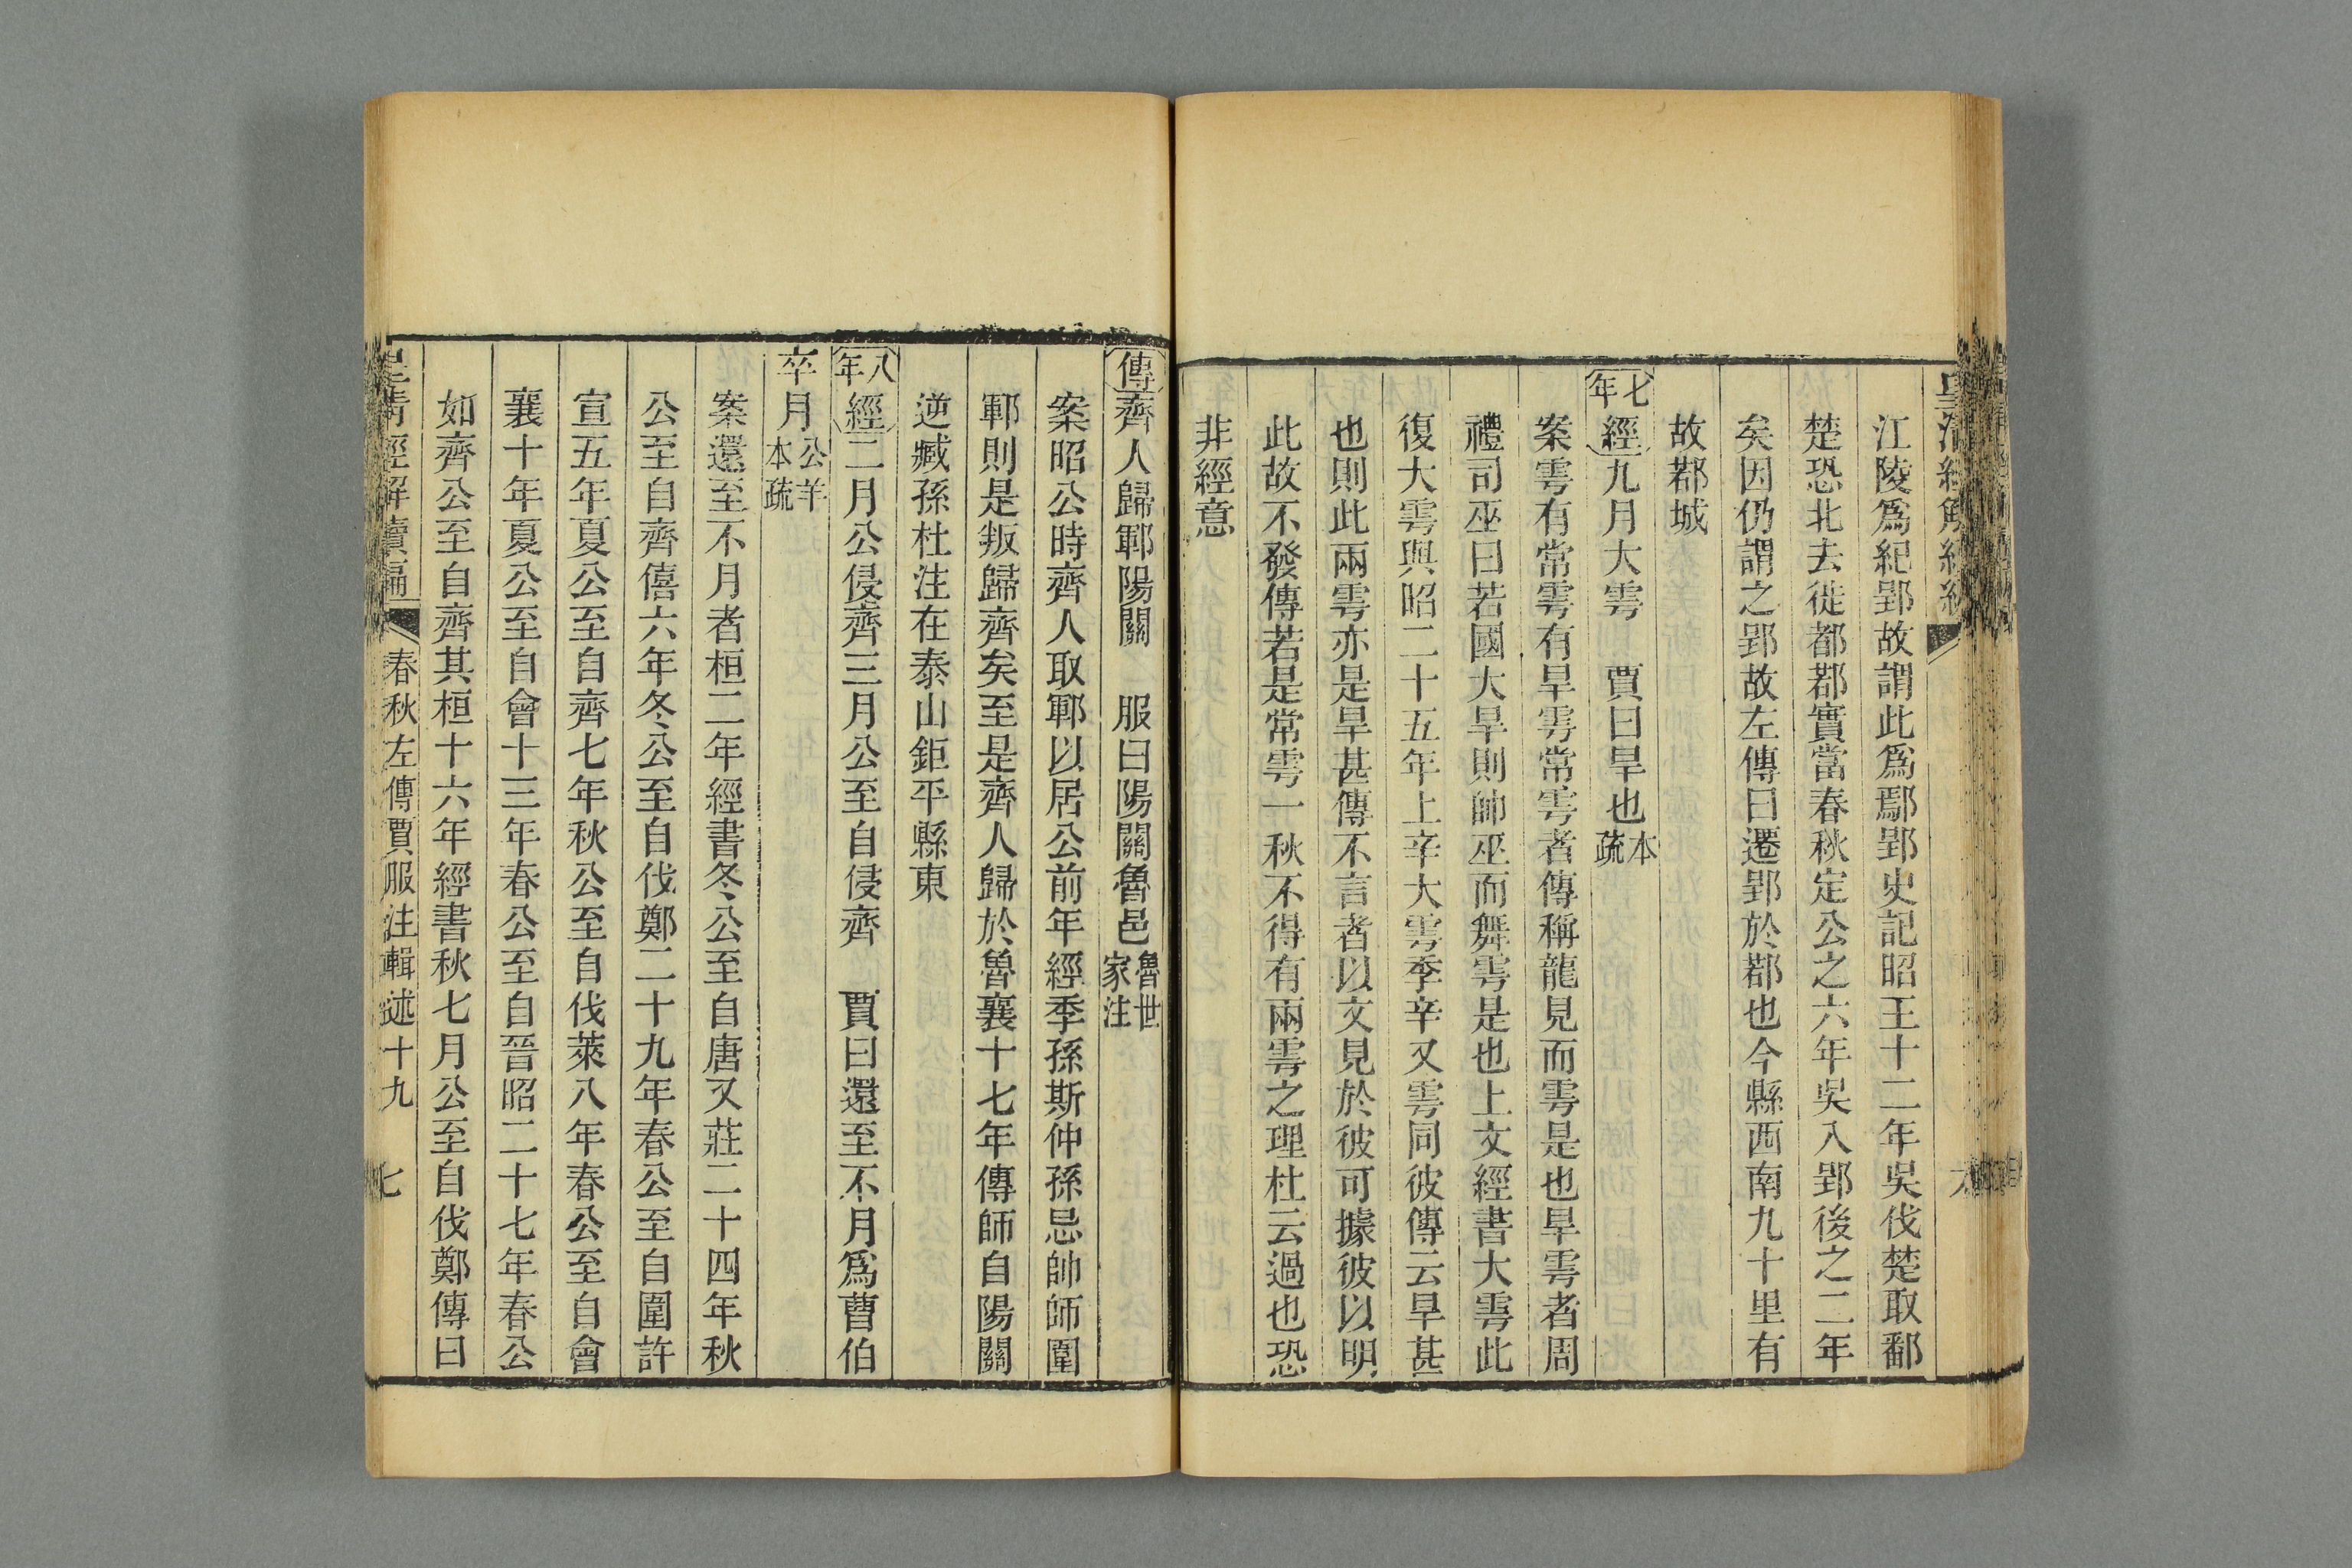 江陵爲紀郢故謂此爲鄢郢史記昭王十二年吳伐楚取鄱
楚恐北去徙都鄀實當春秋定公之六年吳入郢後之二年
矣因仍謂之郢故左傳曰遷郢於鄀也今縣西南九十里有
故鄀城
七年經九月大雩　賈曰旱也本疏
案雩有常雩有旱雩常雩者傳稱龍見而雩是也旱雩者周
禮司巫曰若國大旱則帥巫而舞雩是也上文經書大雩此
復大雩與昭二十五年上辛大雩季辛又雩同彼傳云旱甚
也則此兩雩亦是旱甚傳不言者以文見於彼可據彼以明
此故不發傳若是常雩一秋不得有兩雩之理杜云過也恐
非經意
傳齊人歸鄆陽關　服曰陽關魯邑魯世家注
案昭公時齊人取鄆以居公前年經季孫斯仲孫忌帥師圍
鄆則是叛歸齊矣至是齊人歸於魯襄十七年傳師自陽關
逆臧孫杜注在泰山鉅平縣東
八年經二月公侵齊三月公至自侵齊　賈曰還至不月爲曹伯
卒月公羊本疏
案還至不月者桓二年經書冬公至自唐又莊二十四年秋
公至自齊僖六年冬公至自伐鄭二十九年春公至自圍許
宣五年夏公至自齊七年秋公至自伐萊八年春公至自會
襄十年夏公至自會十三年春公至自晉昭二十七年春公
如齊公至自齊其桓十六年經書秋七月公至自伐鄭傳曰
皇清經解續編　春秋左傳賈服注輯述十九　七